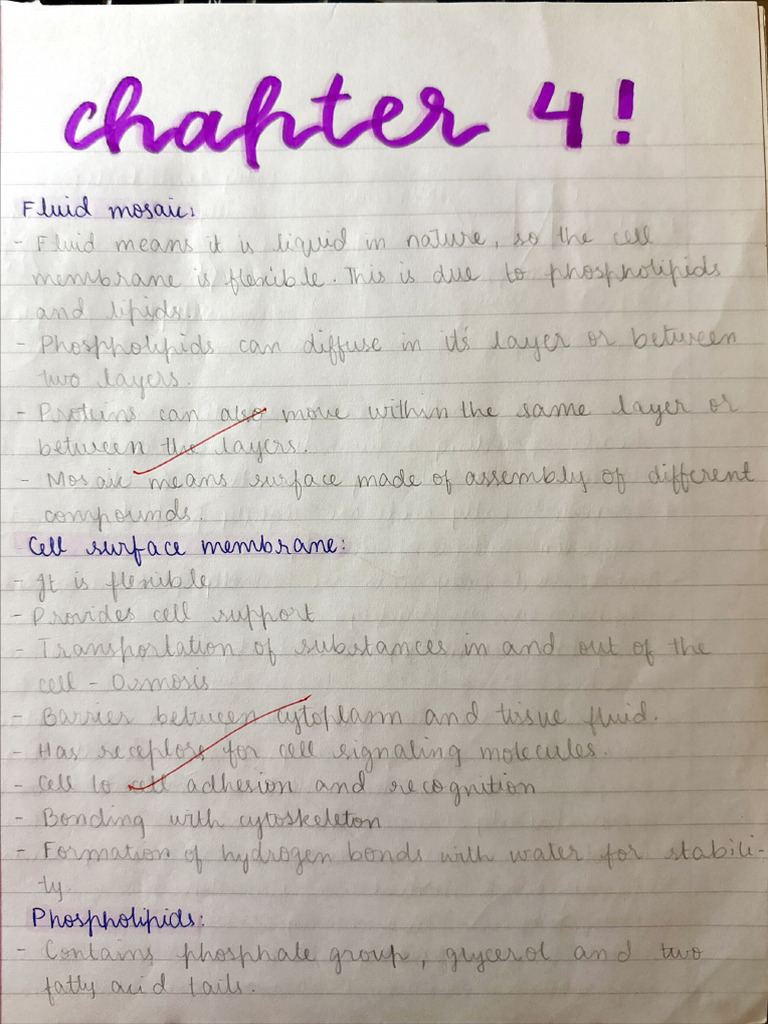 chapter 4!
Fluid mosaic:
- Fluid means it is liquid in nature, so the cell
membrane is flexible. This is due to phospholipids
and lipids.
- Phospholipids can diffuse in it's layer or between
two layers.
- Proteins can also move within the same layer or
between the layers.
- Mosaic means surface made of assembly of different
compounds.
Cell surface membrane:
- It is flexible
- Provides cell support
- Transportation of substances in and out of the
cell - Osmosis
- Barrier between cytoplasm and tissue fluid.
- Has receptors for cell signaling molecules.
- Cell to cell adhesion and recognition
- Bonding with cytoskeleton
- Formation of hydrogen bonds with water for stabili-
ty.
Phospholipids:
- Contains phosphate group, glycerol and two
fatty acid tails.